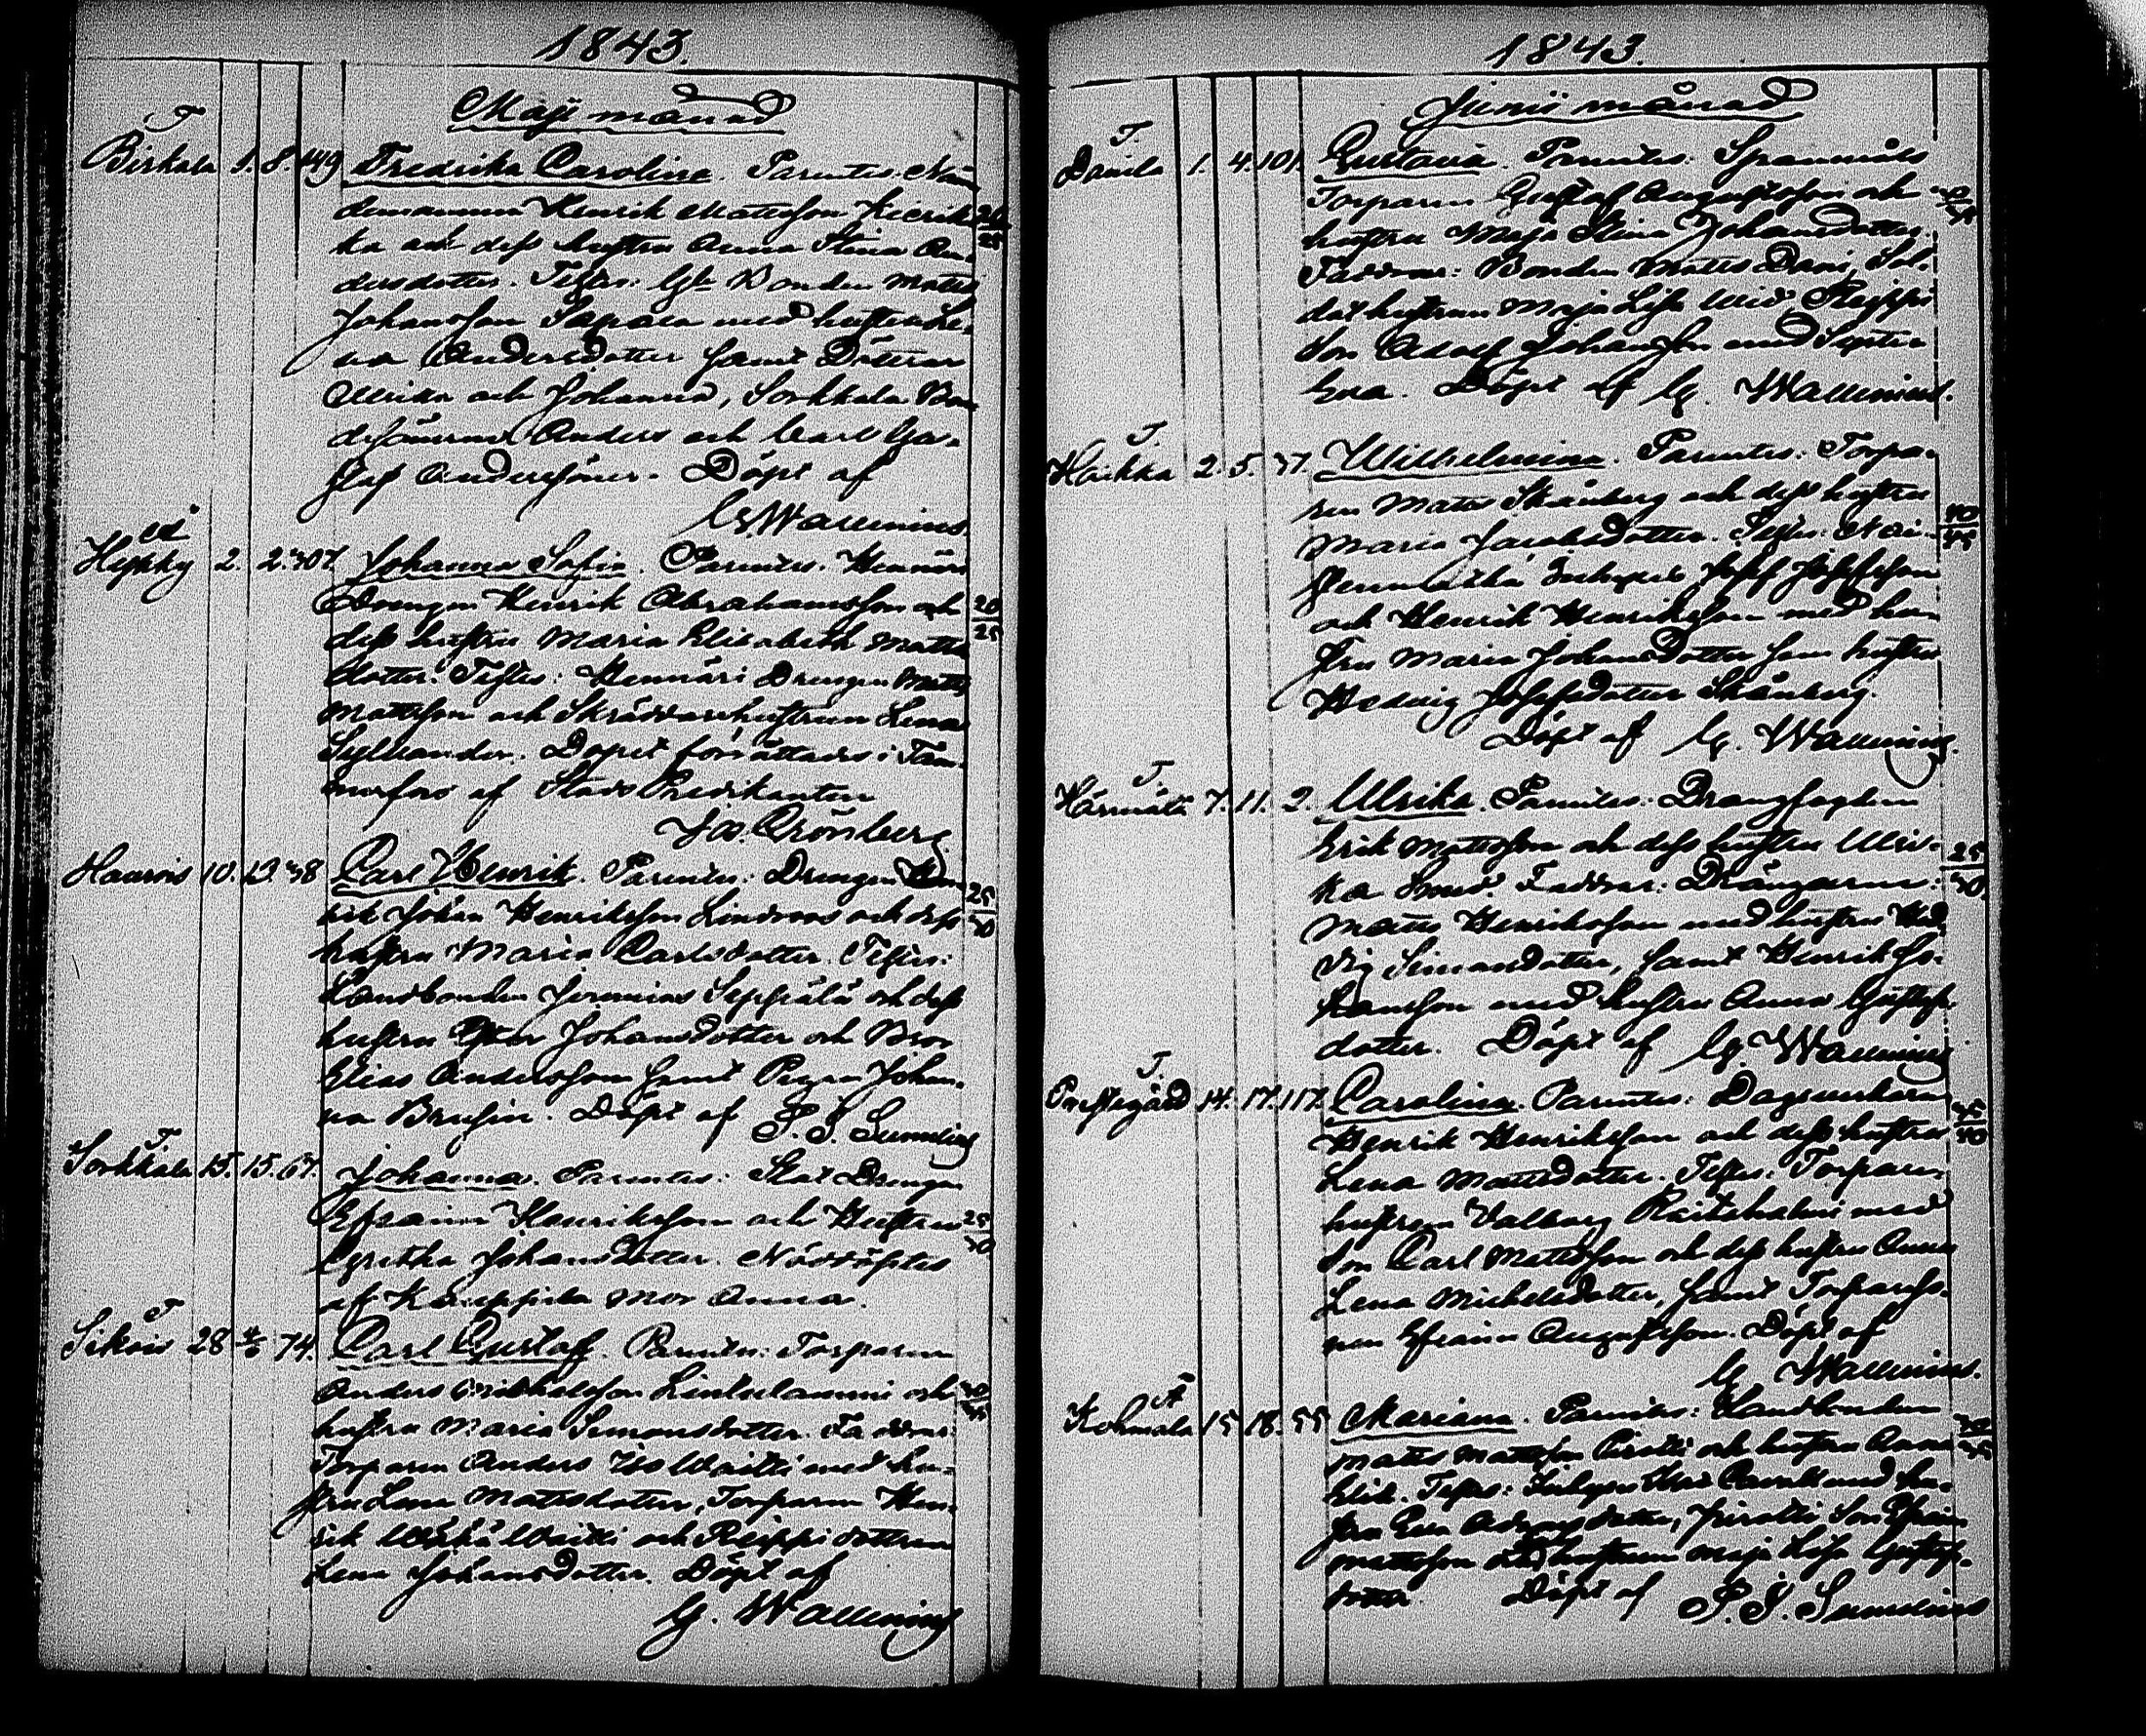 1843.
Maji månad
T
Birkala 1. 8. 149 Fredrika Carolina. Parentes: Nämn
demannen Henrik Mattsson Kierik 20/25
ka och dess hustru Anna Stina An-
dersdotter. Testes: Gl. Bonden Matts
Johansson Papala med hustru Le-
na Andersdotter samt Döttrar
Ulrika och Johanna, Sorkkala Bon
desönerne Anders och Carl Gu-
staf Anderssöner. Döpt af
G. Wallenius.
Hyhky 2. 2. 307. Johanna Sofia. Parentes: Hennäri
Drengen Henrik Abrahamsson och 20/25
dess hustru Maria Elisabeth Matts
dotter. Testes: Hennäri Drengen Matts
Mattsson och Skräddarehustrun Lena
Syllander. Dopet förrättades i Tam
merfors af Stads Predikanten
Joh. Grönberg
Haurois 10. 13. 38 Carl Henrik. Parentes: Drengen Hen
rik Johan Henriksson Lindroos och dess 25/30
hustru Maria Carlsdotter. Testes:
Landbonden Jeremias Seppälä och dess
hustru Ester Johansdotter och Bror
Elias Andersson samt Pigan Johan-
na Brusin. Döpt af P. J. Sumelius
T
Sorkkala 15. 15. 67. Johanna. Parentes: Skat Drengen
Efraim Henriksson och Hustru 25/30
Gretha Johansdotter. Nöddöptes
af Kauppila mor Anna.
T
Sikois 28 4/6 74. Carl Gustaf. Parentes: Torparen
Anders Michelsson Lintulammi och 30/35
hustru Maria Simonsdotter. Faddrar:
Torparen Anders Iso Waitti med hu-
stru Lena Mattsdotter, Torparen Hen-
rik Wähä Waitti och Reippi dottren
Lena Johansdotter. Döpt af
G. Wallenius
1843.
Junii månad
T.
Danila 1. 4. 101. Gustava. Parentes: Spannmåls
Torparen Gustaf Augustsson och
hustru Maja Stina Johansdotter.
Faddrar: Bonden Matts Dani, Sol-
dat hustrun Maja Lisa Wid Reippi
Son Adolf Johansson med Syster
Eva. Döpt af G. Wallenius.
T.
Haikka 2. 5. 37. Wilhelmina. Parentes: Torpa-
ren Matts Skånberg och dess hustru
Maria Jacobsdotter. Testes: Nai- 40/45
stenmatka Inhyses Josef Josefsson
och Henrik Henriksson med hu-
stru Maria Johansdotter samt hustru
Hedvig Josefsdotter Skånberg.
Döpt af G. Wallenius.
T.
Härmälä 7. 11. 2. Ulrika. Parentes: Drängfogden
Erik Mattsson och dess hustru Ulri- 25/30
ka Smed. Faddrar: Drängarne:
Matts Henriksson med hustru Hed
vig Simonsdotter, samt Henrik Jo-
hansson med hustru Anna Gustafs
dotter. Döpt af G. Wallenius
T.
Prestegård 14. 17. 117. Carolina. Parentes: Dagsverkaren
Henrik Henriksson och dess hustru
Lena Mattsdotter. Testes: Torpare
hustrun Valborg Raiteholmi med
Son Carl Mattsson och dess hustru Anna
Lena Michelsdotter, samt Torpareso-
nen Efraim Augustsson. Döpt af
G. Wallenius.
Kolmala 15. 18. 55 Mariana. Parentes: Landbonden
Matts Mattsson och hustru Anna
Elis. Testes: med hu-
stru Eva Adamsdotter, Son Efraim
Mattsson och hustrun Maja Lisa Gustafs-
dotter. Döpt af P. J. Sumelius